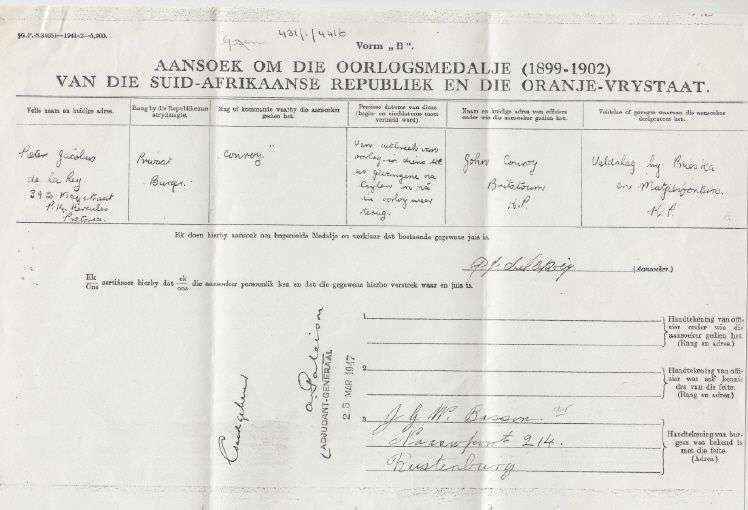 §G.P.-S.34051—1941-2—5,000.
G.S.n 431/1/4416
Vorm „B".
AANSOEK OM DIE OORLOGSMEDALJE (1899-1902)
VAN DIE SUID-AFRIKAANSE REPUBLIEK EN DIE ORANJE-VRYSTAAT.
Volle naam en huidige adres.
Rang by die Republikeinse strydmagte.
Mag of kommando waarby die aansoeker gedien het.
Presiese datums van diens (begin- en einddatums moet vermeld word).
Naam en huidige adres van offisier onder wie die aansoeker gedien het.
Veldslae of gevegte waaraan die aansoeker deelgeneem het.
Pieter Jacobus
de la Rey
392 Meystraat
P.K. Hercules
Pretoria.
Privaat
Burger.
Conroy.
Van uitbreek van
oorlog in diens tot
as gevangene na
Ceylon en na
die oorlog weer
terug.
John Conroy
Britstown
K.P.
Veldslag by Prieska
en Matjesfontein.
K.P.
Ek doen hierby aansoek om bogemelde Medalje en verklaar dat bostaande gegewens juis is.
(Aansoeker.)
Ek/Ons sertifiseer hierby dat ek/ons die aansoeker persoonlik ken en dat die gegewens hierbo verstrek waar en juis is.
1
Handtekening van offisier onder wie die aansoeker gedien het. (Rang en adres.)
2
Handtekening van offisier was ook kennis dra van die feite. (Rang en adres.)
3
J G W. Basson
214.
Rustenburg
Handtekening van burgers was bekend is met die feite. (Adres)
ADJUDANT-GENERAAL
25 MAR 1947